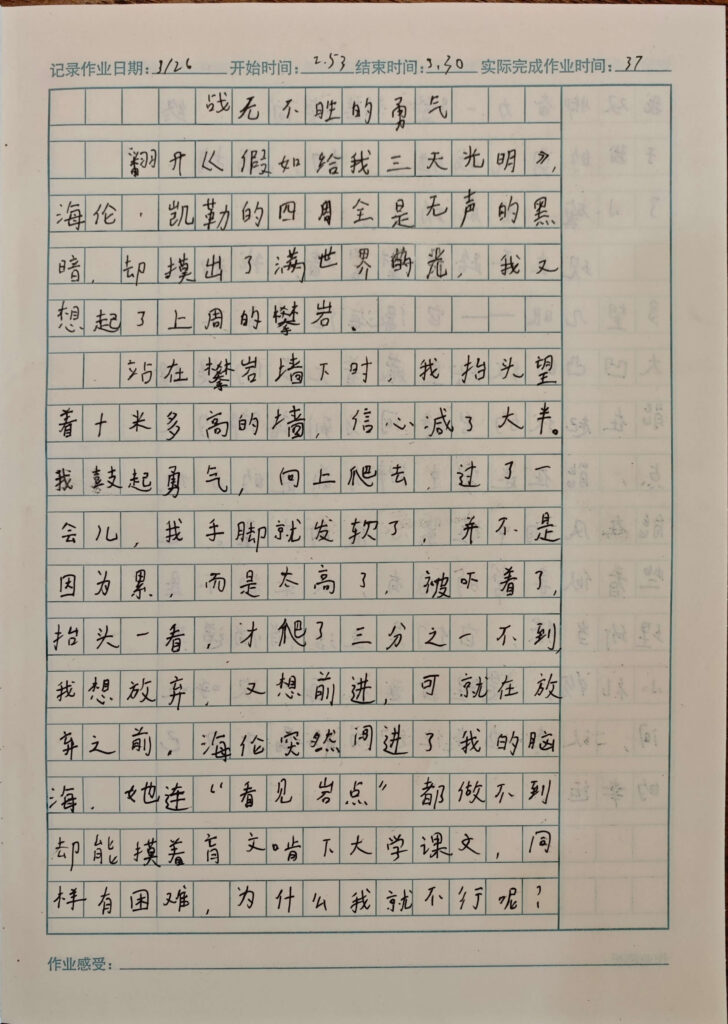 记录作业日期:3/26 开始时间:2.53 结束时间:3.30 实际完成作业时间:37
战无不胜的勇气
翻开《假如给我三天光明》,
海伦·凯勒的四周全是无声的黑
暗，却摸出了满世界的光，我又
想起了上周的攀岩。
站在攀岩墙下时，我抬头望
着十米多高的墙，信心减了大半。
我鼓起勇气，向上爬去，过了一
会儿，我手脚就发软了，并不是
因为累，而是太高了，被吓着了，
抬头一看，才爬了三分之一不到，
我想放弃，又想前进，可就在放
弃之前，海伦突然闯进了我的脑
海，她连“看见岩点”都做不到
却能摸着盲文啃下大学课文，同
样有困难，为什么我就不行呢？
作业感受: